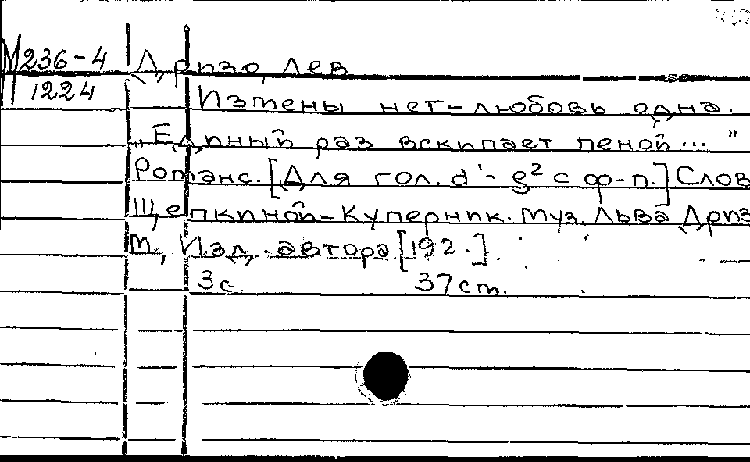 М 236-4
1224
Дризо, Лев
Измены нет-любовь одна.
„Единый раз вскипает пеной... "
Романс. [Для гол. d'- g² с ф-п.] Слов
Щепкиной-Куперник. Муз. Льва Дриз
М, Изд. автора [192.].
3с. 37см.